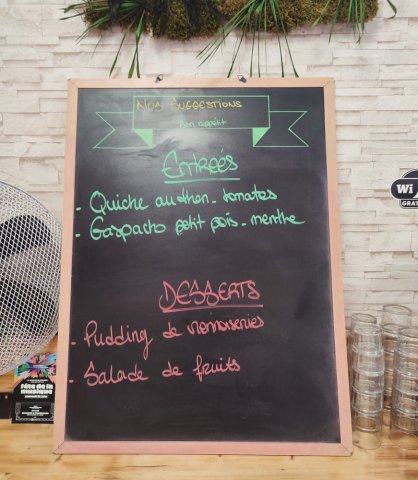 Nos Suggestions
Bon appétit
Entreés
- Quiche au thon - tomates
- Gaspacho petit pois - menthe
DESSERTS
- Pudding de viennoiseries
- Salade de fruits
Wi
GRAT
fête de la
musique